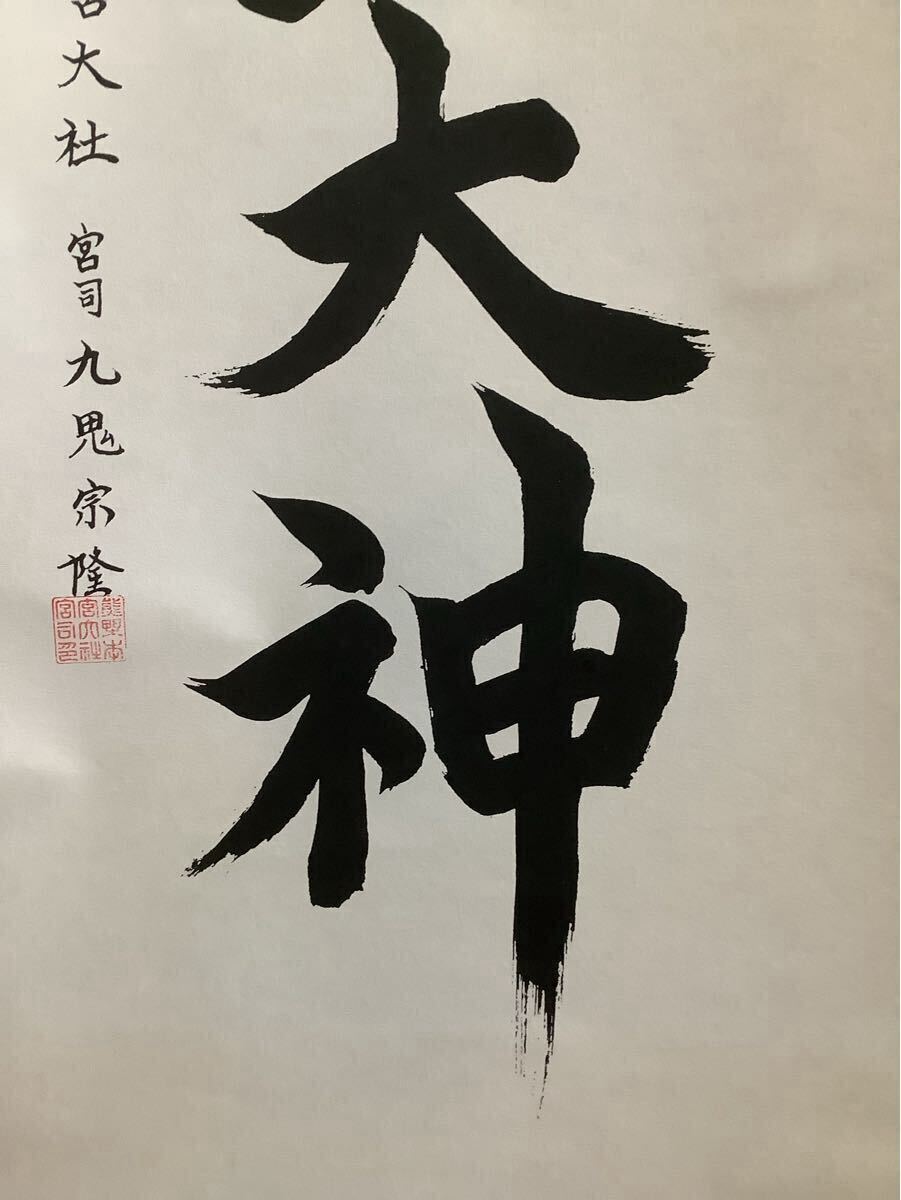 大神
宮大社 宮司九鬼宗隆
熊野本
宮大社
宮司印